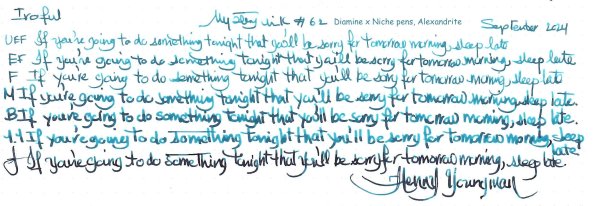 Iroful My Shiny ink # 62 Diamine x Niche pens, Alexandrite September 2024
UEF If you're going to do something tonight that you'll be sorry for tomorrow morning, sleep late
EF If you're going to do something tonight that you'll be sorry for tomorrow morning, sleep late
F If you're going to do something tonight that you'll be sorry for tomorrow morning, sleep late
M If you're going to do something tonight that you'll be sorry for tomorrow morning, sleep late.
B If you're going to do something tonight that you'll be sorry for tomorrow morning, sleep late.
1.1 If you're going to do something tonight that you'll be sorry for tomorrow morning, sleep late
J If you're going to do something tonight that you'll be sorry for tomorrow morning, sleep late.
Henny Youngman